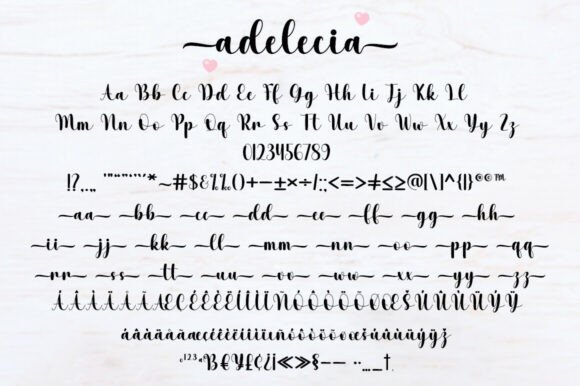 adelecia
Aa Bb Cc Dd Ee Ff Gg Hh Ii Jj Kk Ll
Mm Nn Oo Pp Qq Rr Ss Tt Uu Vv Ww Xx Yy Zz
0123456789
!?,.„ '"“”‘’*~#$&%‰()+−±×÷/:;<=>≠≤≥@[\]^{|}©®™
aa bb cc dd ee ff gg hh
ii jj kk ll mm nn oo pp qq
rr ss tt uu vv ww xx yy zz
ÁÂÀÄÅÃÆÇÉÊÈËÍÎÌÏÑÓÔÒÖÕØŒŠÚÛÙÜÝŸ
áâàäåãæçéêèëíîìïñóôòöõøœšúûùüýÿž
€¥£¢¿¡≪≫§–— ··…_†